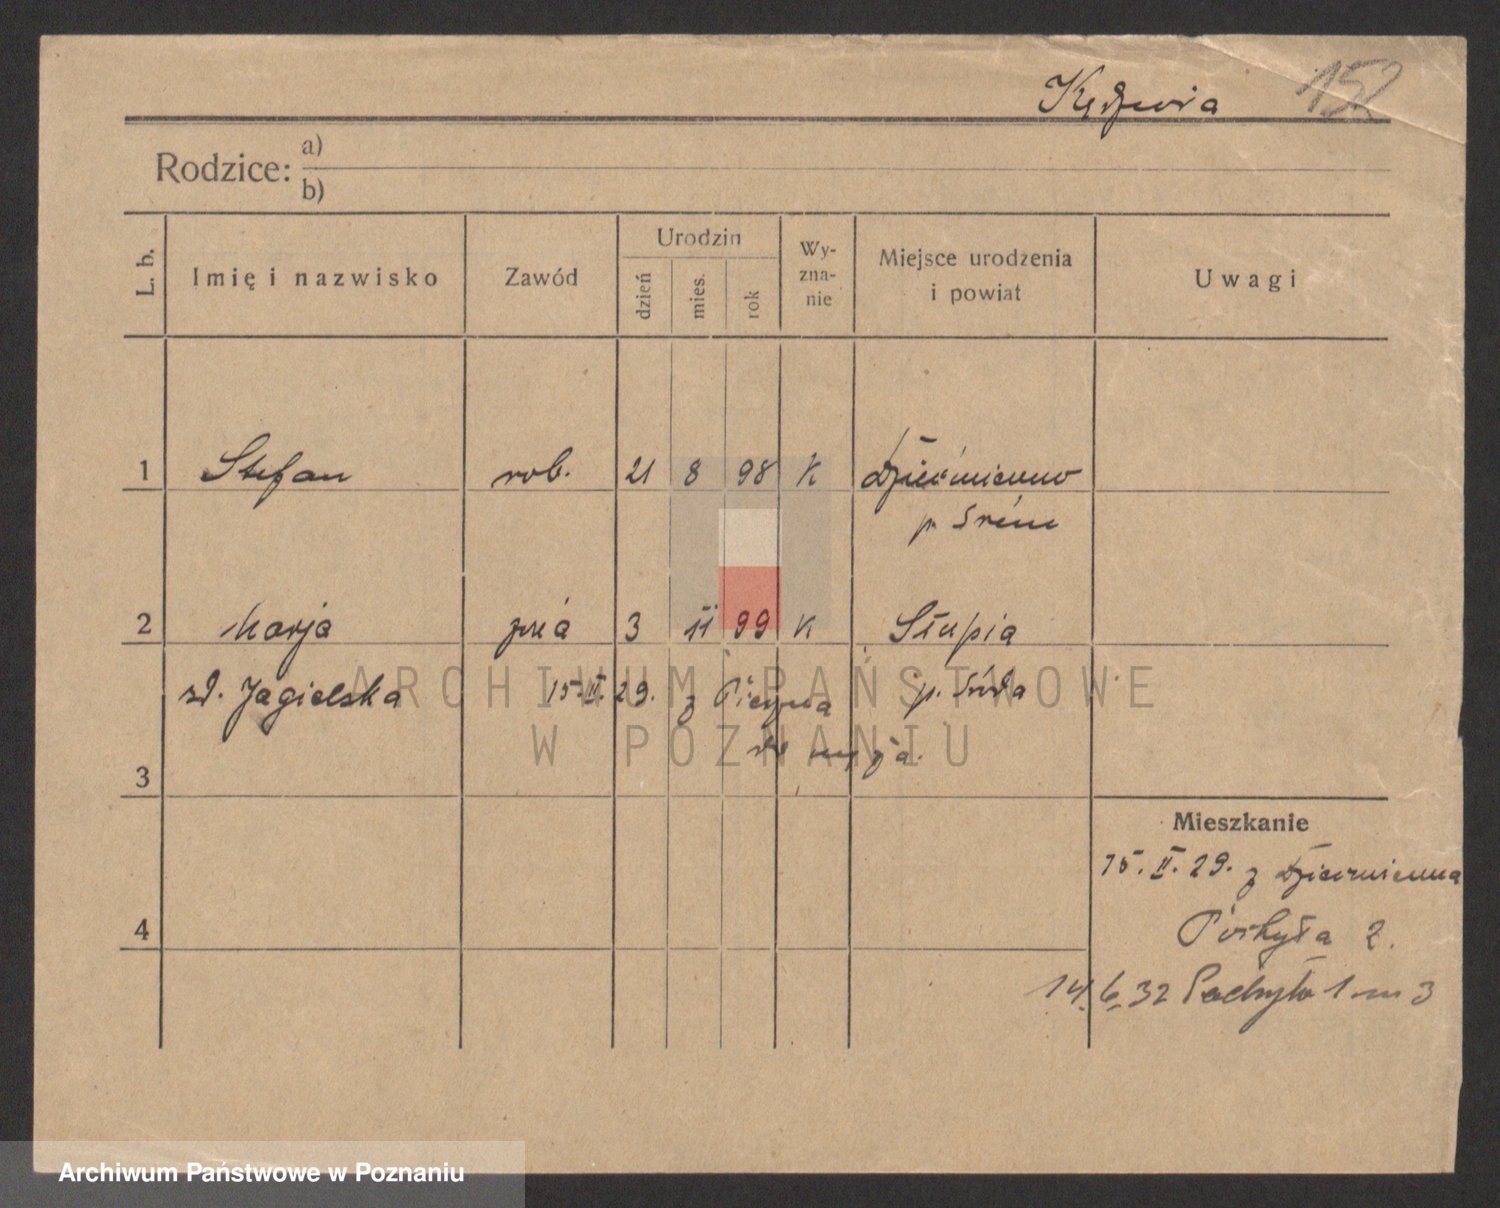 Kędziora 152
Rodzice: a)
b)
L. b. Imię i nazwisko Zawód Urodzin dzień mies. rok Wy-zna-nie Miejsce urodzenia i powiat Uwagi
1 Stefan rob. 21 8 98 K
p. Śrem
2 Marja 3 11 99 K Słupia
zd. Jagielska 15. II. 29. z p. Środa
3
Mieszkanie
15. II. 29. z
4 Pochyła 2.
14/6 32 Pochyła 1 m 3
ARCHIWUM PAŃSTWOWE
W POZNANIU
Archiwum Państwowe w Poznaniu